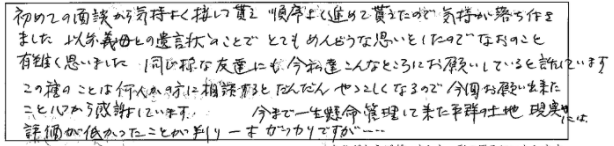 初めての面談から気持よく接して貰え 順序よく進めて貰えたので気持が落ち付き
ました 以前義母との遺言状のことでとてもめんどうな思いをしたのでなおのこと
有難く思いました 同じ様な友達にも今私達こんなところにお願いしていると話しています
この種のことは何人かの方に相談するとだんだんやゝこしくなるので今回お願い出来た
こと心から感謝しています。 今まで一生懸命管理して来た平群の土地 現実には
評価が低かったことが判り一寸ガッカリですが……